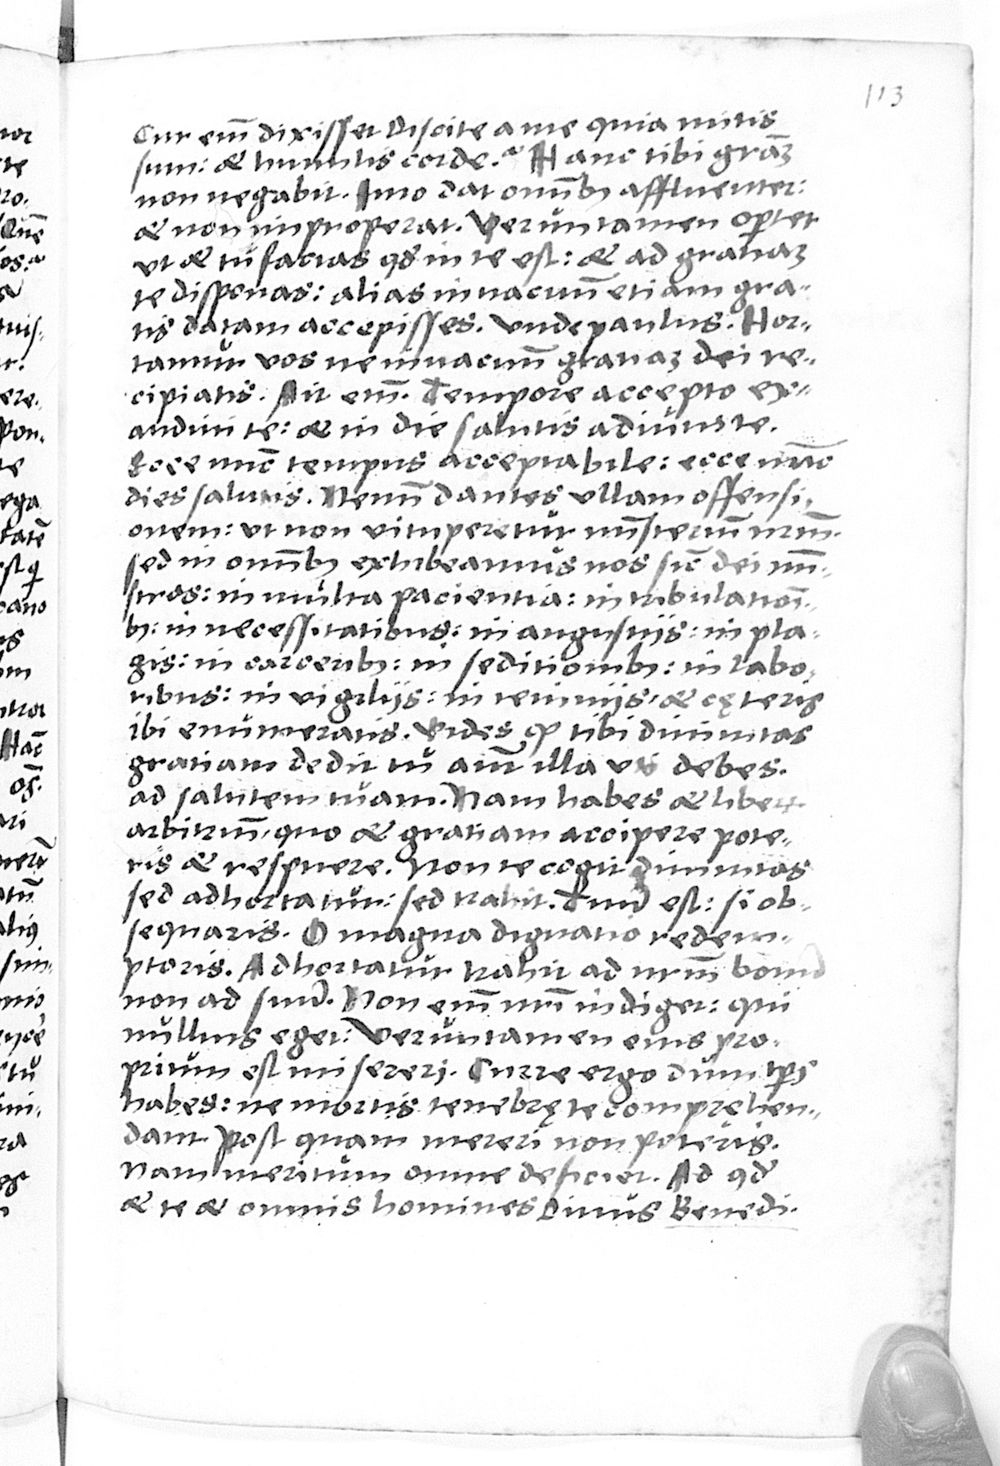 113
Cur em̄ dixisset Discite a me quia mitis
sum: & humilis corde.? Hanc tibi gr̄aʒ
non negabit. Imo dat omnībꝫ affluenter:
& non improperat. Verũntamen oportet
ut & tũ facias qđ in te est: & ad gratiaʒ
te disponas: alias in vacuũ etiam gra-
tis datam accepisses. Unde paulus. Hor-
tamur vos ne in vacuũ gratiaʒ dei re-
cipiatis. Ait em̄. Tempore accepto ex-
audiui te: & in die salutis adiuui te.
Ecce nūc tempus acceptabile: ecce nūc
dies salutis. Nemī dantes ullam offensi-
onem: ut non vituperetur minīsteriũ nr̄m.
sed in omnībꝫ exhibeamus nos sic̄ dei minī-
stros: in multa paciencia: in tribulationī-
bꝫ: in necessitatibus: in angustijs: in pla-
gis: in carceribꝫ: in seditionibꝫ: in labo-
ribus: in vigilijs: in ieiunijs, & cęteris
ibi enumeratis. Vides ꝙ tibi diuinitas
gratiam dedit tũ aũt illa uti debes.
ad salutem tuam. Nam habes & liberũ
arbitriũ, quo & gratiam accipere pote-
ris & respuere. Non te cogit diuinitas
sed adhortatur: sed trahit. Tuũ est: si ob-
sequaris. O magna dignatio redem-
ptoris. Adhortatur trahit ad nr̄m bonũ
non ad suũ. Non em̄ nr̄i indiget: qui
nullius eget: Verũntamen eius pro-
prium est misereri. Curre ergo dum tp̄s
habes: ne mortis tenebrę te compręhen-
dant. Post quam mereri non poteris.
Nam meritum omne deficiet. Ad qđ
& te & omnis homines Diuus Benedi-